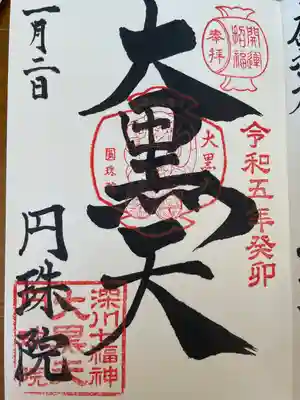 奉拝
開運
招福
令和五年癸卯
大黒天
大黒
圓珠
一月二日
円珠院
深川七福神
大黒天
院